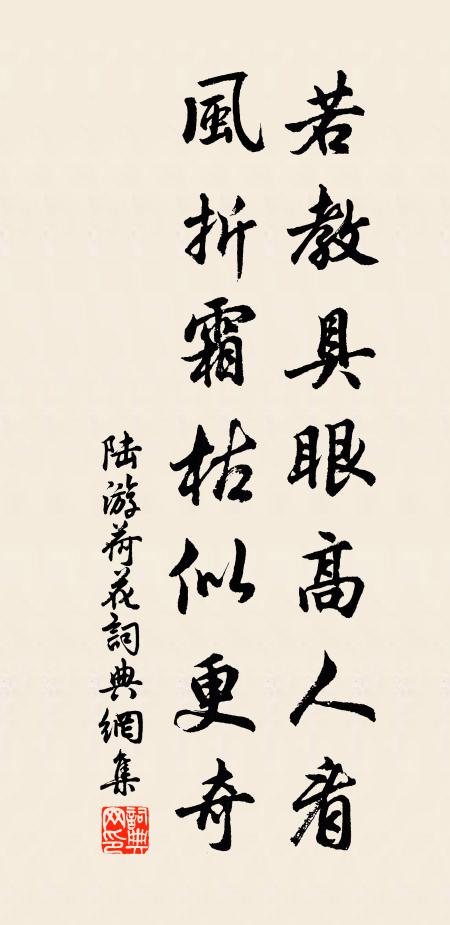 若教具眼高人看
風折霜枯似更奇
陆游荷花詞典網集
詞典网印